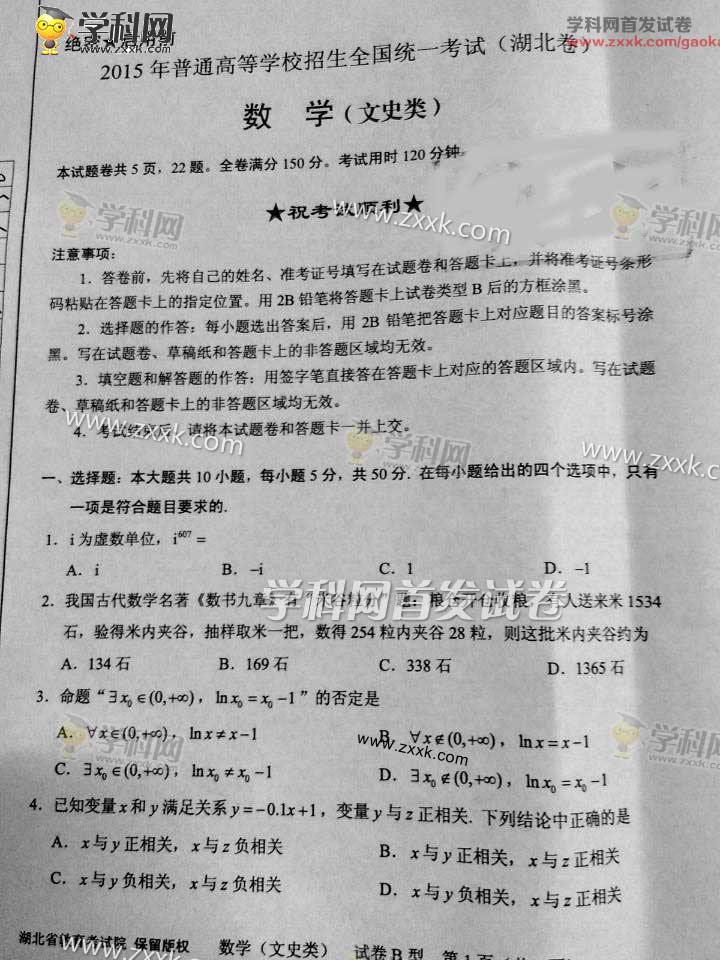 学科网首发试卷
www.zxxk.com/gaoka
学科网
绝
2015年普通高等学校招生全国统一考试（湖北卷）
数 学（文史类）
本试题卷共5页，22题。全卷满分150分。考试用时120分钟
★祝考 顺利★
学科网
zxxk.com
学科网
zxxk.com
www.zxxk.com
注意事项：
1．答卷前，先将自己的姓名、准考证号填写在试题卷和答题卡上，并将准考证号条形
码粘贴在答题卡上的指定位置。用2B铅笔将答题卡上试卷类型B后的方框涂黑。
2．选择题的作答：每小题选出答案后，用2B铅笔把答题卡上对应题目的答案标号涂
黑。写在试题卷、草稿纸和答题卡上的非答题区域均无效。
3．填空题和解答题的作答：用签字笔直接答在答题卡上对应的答题区域内。写在试题
卷、草稿纸和答题卡上的非答题区域均无效。
4．考试结束后，请将本试题卷和答题卡一并上交。
www.zxxk.com
学科网
zxxk.com
www.zxxk.com
一、选择题：本大题共10小题，每小题5分，共50分．在每小题给出的四个选项中，只有
一项是符合题目要求的．
1．i为虚数单位，i⁶⁰⁷ =
A．i B．−i C．1 D．−1
学科网首发试卷
2．我国古代数学名著《数书九章》有 题：粮仓开仓收粮，有人送来米1534
石，验得米内夹谷，抽样取米一把，数得254粒内夹谷28粒，则这批米内夹谷约为
A．134石 B．169石 C．338石 D．1365石
3．命题“∃x₀∈(0,+∞)，ln x₀ = x₀ −1”的否定是
A．∀x∈(0,+∞)，ln x ≠ x−1 B．∀x∉(0,+∞)，ln x = x−1
C．∃x₀∈(0,+∞)，ln x₀ ≠ x₀ −1 D．∃x₀∉(0,+∞)，ln x₀ = x₀ −1
学科网
zxxk.com
www.zxxk.com
学科网
zxxk.com
4．已知变量x和y满足关系y=−0.1x+1，变量y与z正相关．下列结论中正确的是
A．x与y正相关，x与z负相关 B．x与y正相关，x与z正相关
C．x与y负相关，x与z负相关 D．x与y负相关，x与z正相关
www.zxxk.com
学科网
zxxk.com
www.zxxk.com
湖北省教育考试院 保留版权 数学（文史类） 试卷B型 第1页